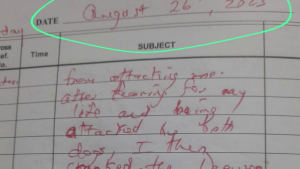 DATE August 26, 2023
day
oss
ef. Time SUBJECT
o.
from attacking me.
after fearing for my
life and being
attacked by both
dogs, I then